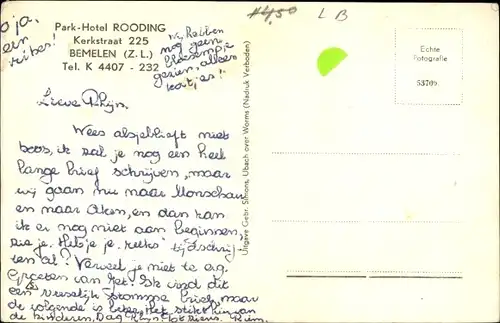 o ja.
Park-Hotel ROODING
Kerkstraat 225
BEMELEN (Z. L.)
Tel. K 4407 - 232
wij hebben
nog geen
gezien, alleen
kat, es!
4,50
L B
Echte
Fotografie
53709
Uitgave Gebr. Simons, Ubach over Worms (Nadruk Verboden)
Lieve Thijn,
Wees alsjeblieft niet
boos, ik zal je nog een heel
lange brief schrijven, maar
wij gaan nu naar Monschau
en naar Aken, en dan kan
ik er nog niet aan beginnen,
zie je. Heb je je reeks bij
ten al? Verveel je niet te erg.
Groeten van Ket. Ik vind dit
een vreselijk stomme brief, maar
de volgende is beter. Het stikt hier van
de kinderen, Dag Thijn, tot ziens.